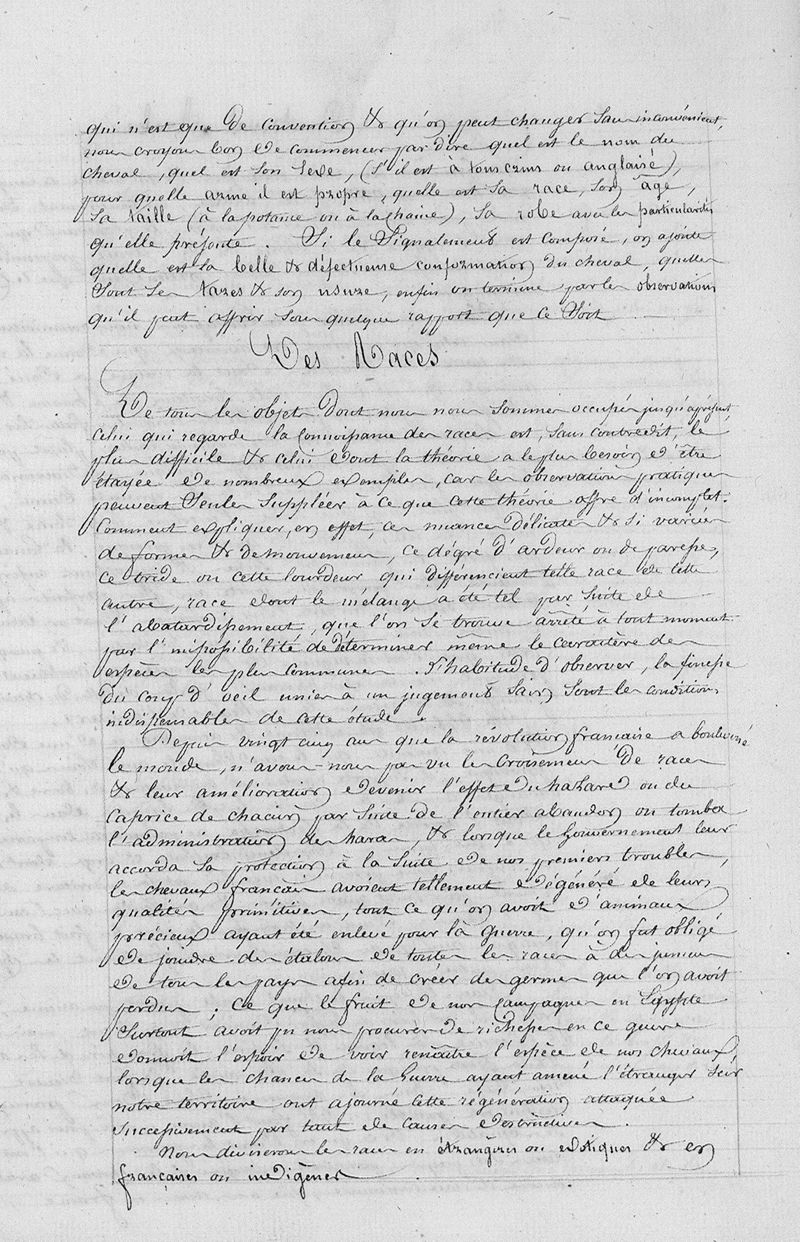 qui n'est que de convention & qu'on peut changer sans inconvénient,
nous croyons bon de commencer par dire quel est le nom du
cheval, quel est son sexe, (s'il est à tous crins ou anglaisé),
pour quelle arme il est propre, quelle est sa race, son âge,
sa taille (à la potance ou à la chaine), sa robe avec les particularités
qu'elle présente. Si le signalement est composé, on ajoute
quelle est sa belle & défectueuse conformation du cheval, quelles
sont ses tares & son usure, enfin on termine par les observations
qu'il peut offrir sous quelque rapport que ce soit
Des Races
De tous les objets dont nous nous sommes occupés jusqu'à présent,
celui qui regarde la connoissance des races est, sans contredit, le
plus difficile & celui dont la théorie a le plus besoin d'être
étayée de nombreux exemples, car les observations pratiques
peuvent seules suppléer à ce que cette théorie offre d'incomplet.
Comment expliquer, en effet, ces nuances délicates & si variées
de formes & de mouvemens, ce dégré d'ardeur ou de paresse,
ce bride ou cette lourdeur qui différencient telle race de telle
autre, race dont le mélange a été tel par suite de
l'abatardissement, que l'on se trouve arrêté à tout moment
par l'impossibilité de déterminer même le caractère des
espèces les plus communes. L'habitude d'observer, la finesse
du coup d'œil unies à un jugement sain sont les conditions
indispensables de cette étude.
Depuis vingt cinq ans que la révolution française a boulversé
le monde, n'avons-nous pas vu les croisemens de races
& leur amélioration devenir l'effet du hazard ou du
caprice de chacun par suite de l'entier abandon ou tomba
l'administration des haras, & lorsque le Gouvernement leur
accorda sa protection à la suite de nos premiers troubles,
les chevaux français avoient tellement dégénéré de leurs
qualités primitives, tout ce qu'on avoit d'animaux
précieux ayant été enlevé pour la guerre, qu'on fut obligé
de joindre des étalons de toutes les races à des jumens
de tous les pays afin de créer des germes que l'on avoit
perdus; ce que le fruit de nos campagnes en Egypte
surtout avoit pu nous procurer de richesses en ce genre
donnoit l'espoir de voir renaitre l'espèce de nos chevaux,
lorsque les chances de la Guerre ayant amené l'étranger sur
notre territoire ont ajourné cette régénération attaquée
successivement par tant de causes destructives.
Nous diviserons les races en étrangères ou exotiques & en
françaises ou indigènes